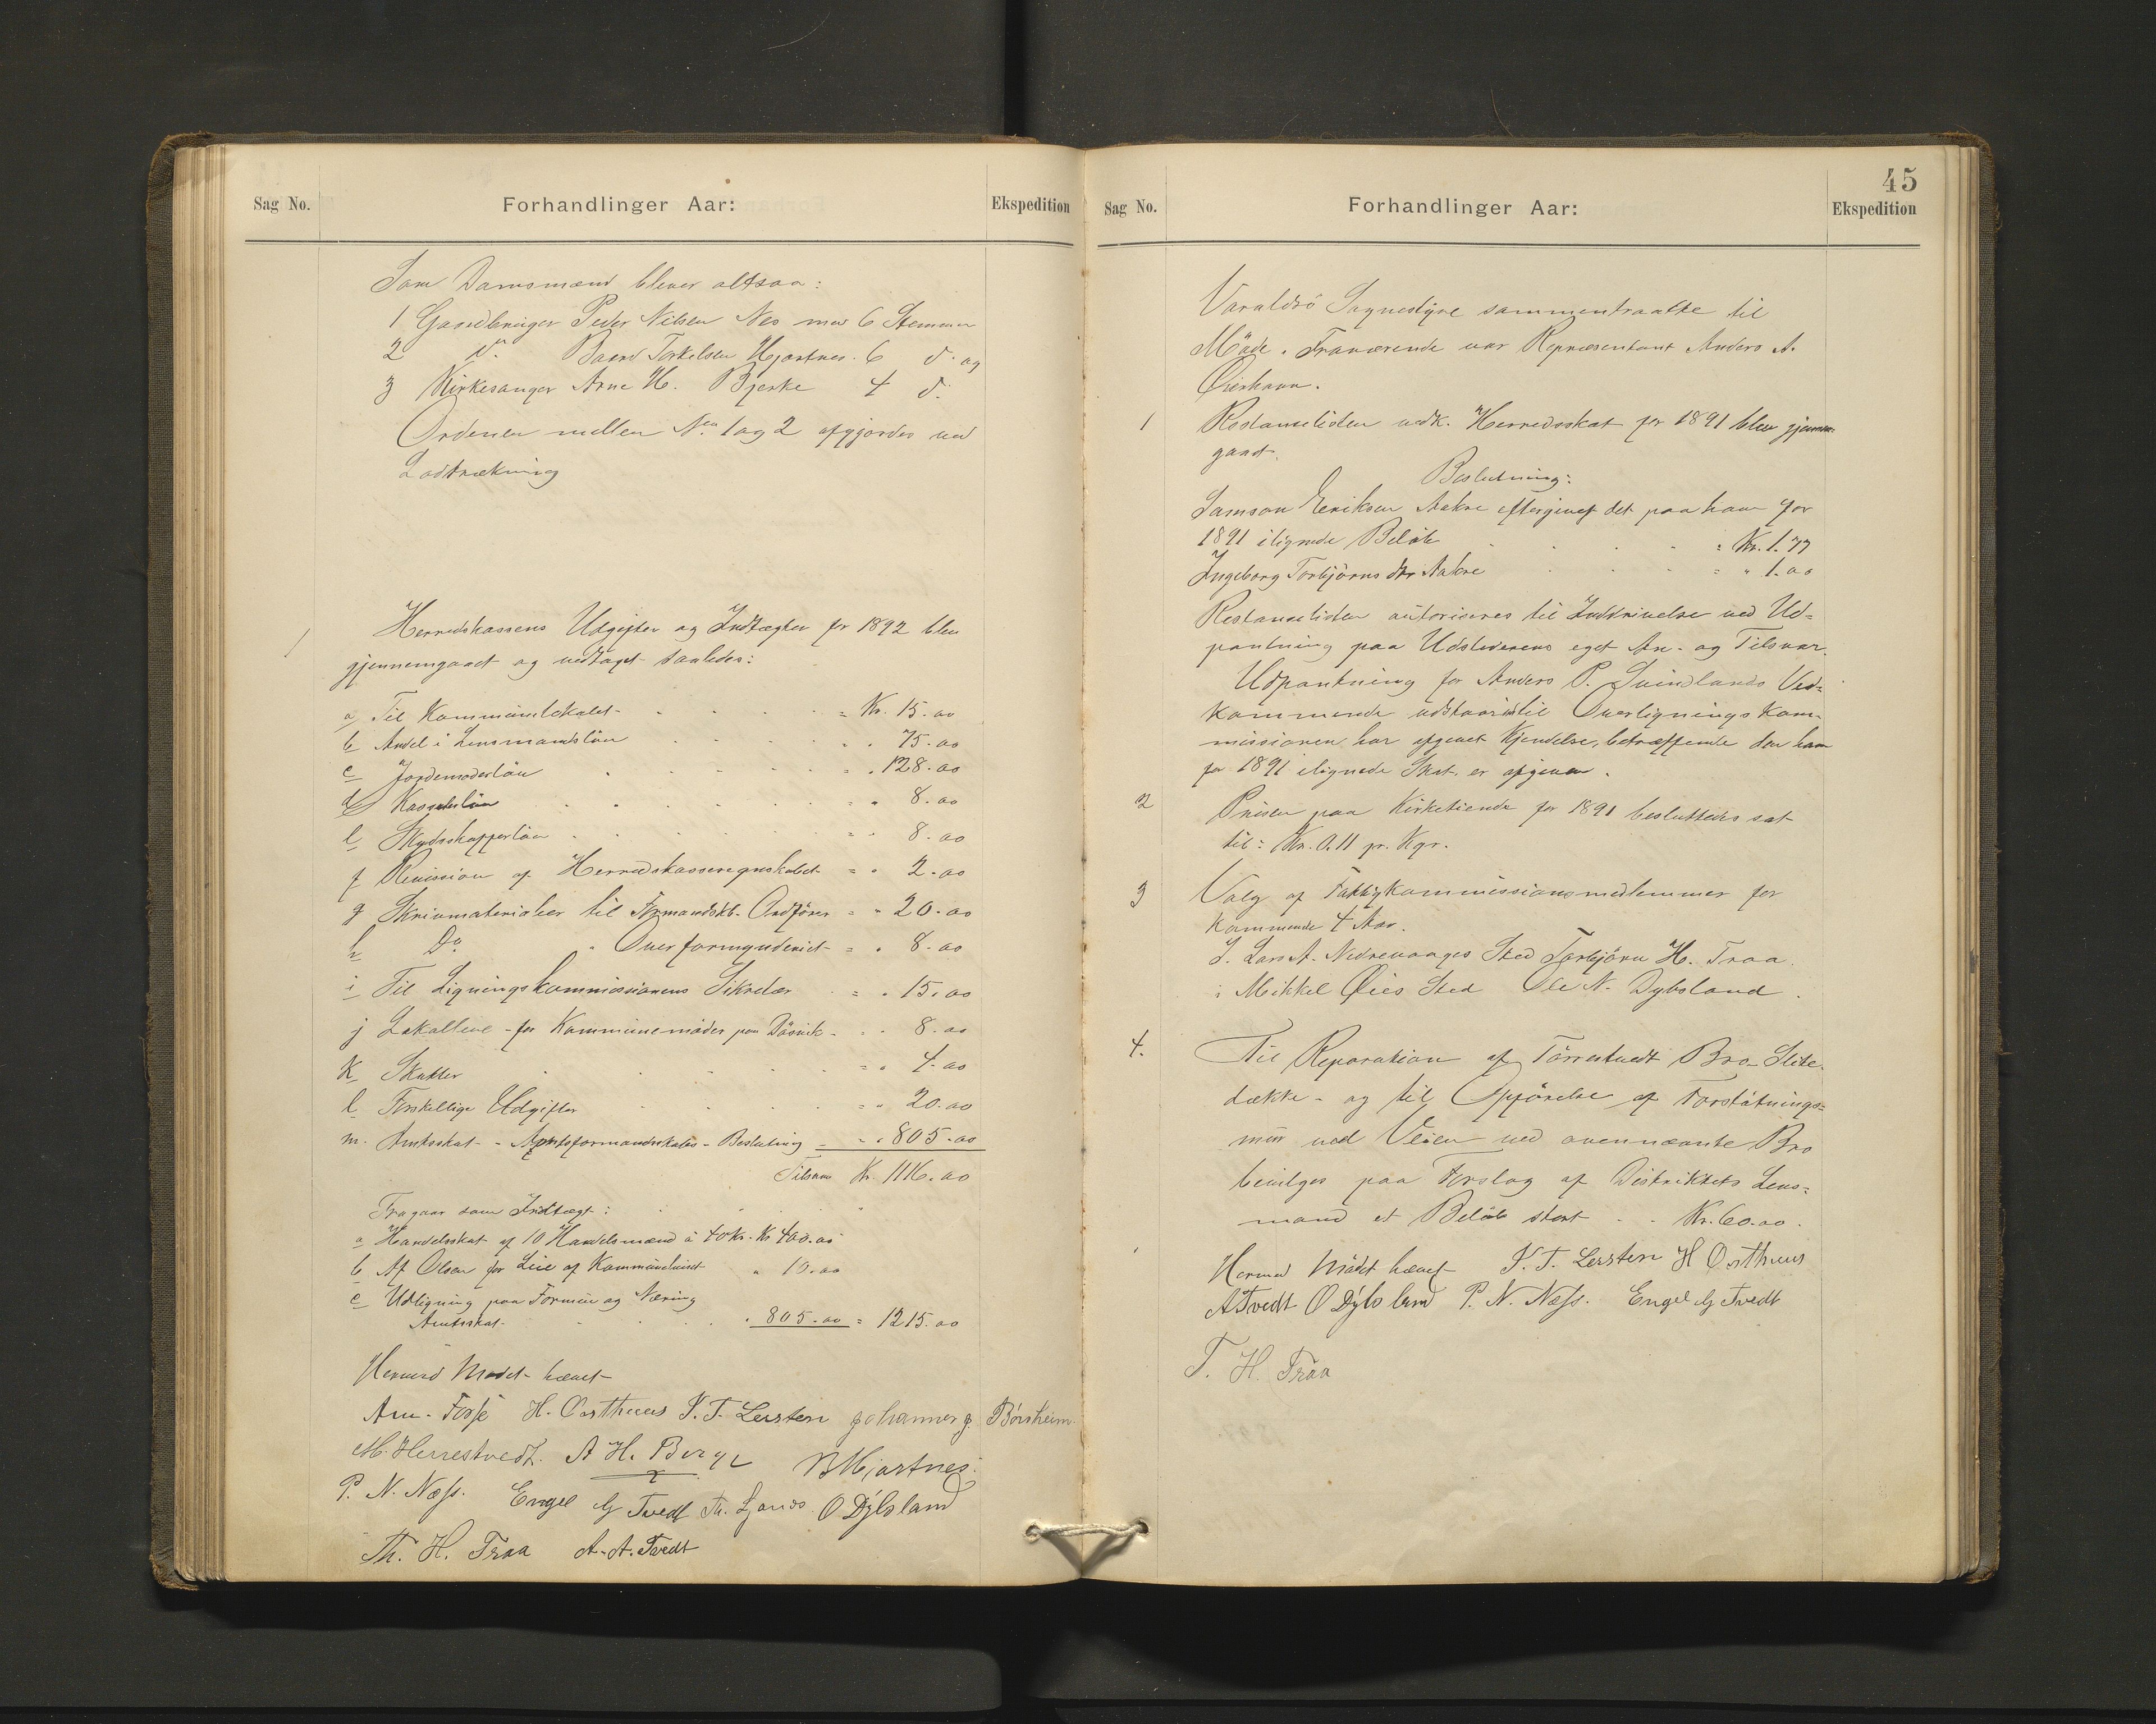 Sag No.
Forhandlinger Aar:
Ekspedition
Som Domsmænd blever altsaa:
1 Gaardbruger Peder Nilsen Nes med 6 Stemmer
2 do Baard Torkelsen Hjartnes. 6 do. og
3 Kirkesanger Arne H. Bjerke 4 do.
Ordenen mellem No 1 og 2 afgjordes ved
Lodtrækning
1 Herredskassens Udgifter og Indtægter for 1892 blev
gjennemgaaet og vedtaget saaledes:
a Til Kommunelokalet = Kr. 15.00
b Andel i Lensmandslön " 75.00
c Jordemoderlön = " 128.00
d Kasserlön = " 8.00
e Skydsskafferlön = " 8.00
f Revision af Herredskasseregnskabet = " 2.00
g Skrivmaterialier til Formandskb. Ordförer = " 20.00
h Do " Overformynderiet = " 8.00
i Til Ligningskommissionens Sikretær = " 15.00
j Lokalleie for Kommunemöder paa Dösvik = " 8.00
k Skatter = " 4.00
l Forskellige Udgifter = " 20.00
m. Amtsskat - Amtsformandskabs-Beslutning = " 805.00
Tilsam Kr 1116.00
Fragaar som Indtægt:
a Handelsskat af 10 Handelsmænd á 40 Kr. Kr 400.00
b Af Olsen for Leie af Kommunehuset " 10.00
c Udligning paa Formue og Næring
Amtsskat " 805.00 = 1215.00
Hermed Mødet hævet
H. Oosthuus J. T. Leisten Johannes J. Börsheim
M. Herrestvedt. A H. Berge B Hjartnes.
P. N. Næss. Engel G Tvedt O Dybsland
Th. H. Traa A. A. Tvedt
45
Sag No.
Forhandlinger Aar:
Ekspedition
Varaldsö Sognestyre sammentraatte til
Möde. Fraværende var Repræsentant Anders A.
Öierhavn.
1 Restanselisten vedk. Herredsskat for 1891 blev gjennem-
gaaet.
Beslutning:
Samson Eriksen Aakre eftergivet det paa ham for
1891 ilignede Belöb = Kr. 1.77
Ingeborg Torbjörns dtr Aakre = " 1.00
Restanselisten autoriseres til Inddrivelse ved Ud=
pantning paa Udstederens eget An- og Tilsvar.
Udpantning for Anders P. Svindlands Ved=
kommende udstaar indtil Overlignings Kom-
missionen har afgivet Kjendelse, betræffende den ham
for 1891 ilignede Skat, er afgiven.
2 Prisen paa Kirketiende for 1891 besluttedes sat
til: Kr. 0.11 pr. Kgr.
3 Valg af Fattigkommissionsmedlemmer for
kommende 4 Aar.
I. Lars A. Nedrevaages Sted Torbjörn H. Traa.
i Mikkel Öies Sted Ole N. Dybsland.
4. Til Reparation af Törrestvedt Bro-Slite-
dække - og til Opförelse af Forstötnings=
mur ved Veien ved ovennævnte Bro
bevilges paa Forslag af Distriktets Lens=
mand et Belöb stort Kr. 60.00.
Hermed Mödet hævet J. T. Leisten H Oosthuus
A Tvedt O Dybsland P. N. Næss. Engel G Tvedt
T. H. Traa